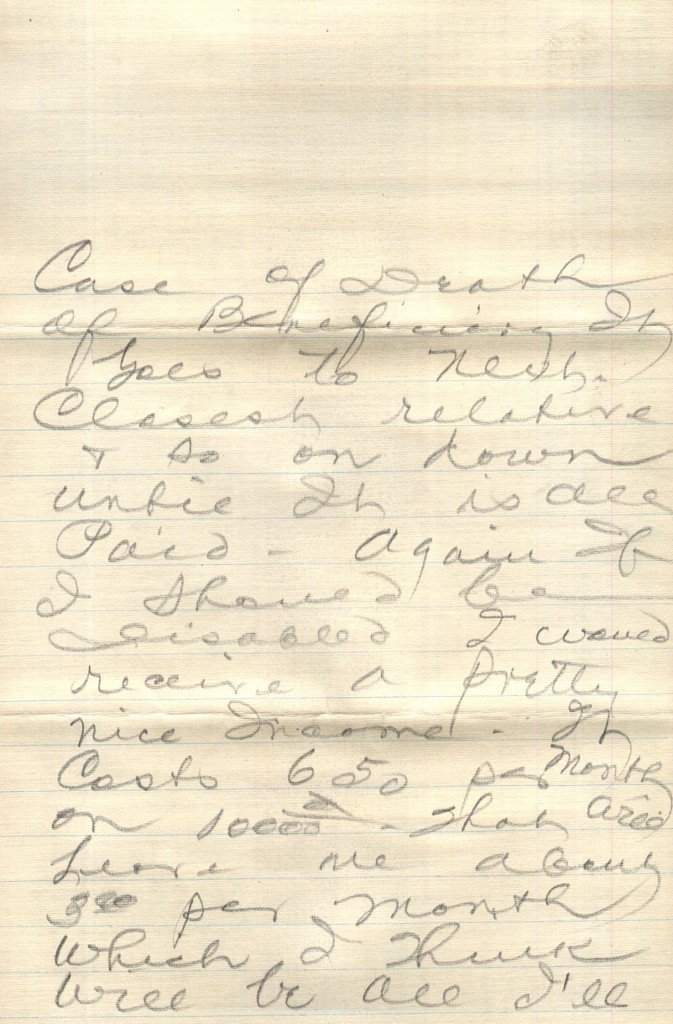 Case of Death
of Beneficiary It
goes to Next
Closest relative
+ so on down
until It is all
Paid - Again If
I Should be
Disabled I would
receive a pretty
nice Income - It
Costs 6 50 per Month
on 10000 - That
Leave me about
3 00 per Month
Which I Think
Will be all I'll